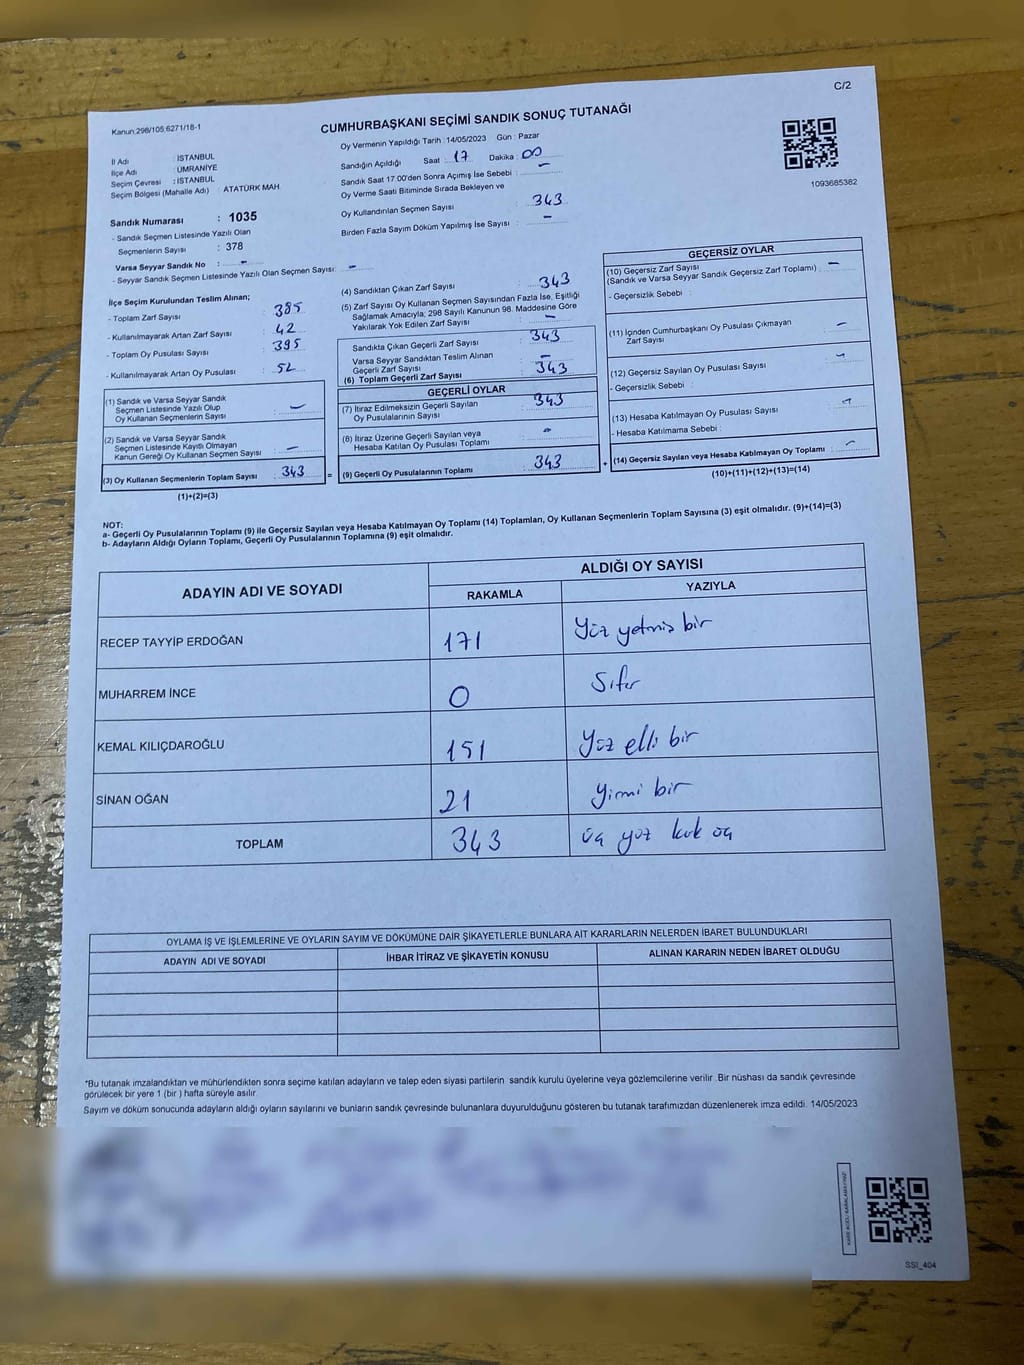 C/2
Kanun,298/105;6271/18-1
CUMHURBAŞKANI SEÇİMİ SANDIK SONUÇ TUTANAĞI
Oy Vermenin Yapıldığı Tarih : 14/05/2023 Gün : Pazar
İl Adı : İSTANBUL
İlçe Adı : ÜMRANİYE
Seçim Çevresi : İSTANBUL
Seçim Bölgesi (Mahalle Adı) : ATATÜRK MAH
Sandığın Açıldığı Saat : 17 Dakika : 00
Sandık Saat 17.00'den Sonra Açımış İse Sebebi : -
Oy Verme Saati Bitiminde Sırada Bekleyen ve
Oy Kullandırılan Seçmen Sayısı : 343
Birden Fazla Sayım Döküm Yapılmış İse Sayısı : -
1093685382
Sandık Numarası : 1035
- Sandık Seçmen Listesinde Yazılı Olan
Seçmenlerin Sayısı : 378
Varsa Seyyar Sandık No : -
- Seyyar Sandık Seçmen Listesinde Yazılı Olan Seçmen Sayısı: -
İlçe Seçim Kurulundan Teslim Alınan;
- Toplam Zarf Sayısı : 385
- Kullanılmayarak Artan Zarf Sayısı : 42
- Toplam Oy Pusulası Sayısı : 395
- Kullanılmayarak Artan Oy Pusulası : 52
(1) Sandık ve Varsa Seyyar Sandık
Seçmen Listesinde Yazılı Olup
Oy Kullanan Seçmenlerin Sayısı : -
(2) Sandık ve Varsa Seyyar Sandık
Seçmen Listesinde Kayıtlı Olmayan
Kanun Gereği Oy Kullanan Seçmen Sayısı : -
(3) Oy Kullanan Seçmenlerin Toplam Sayısı : 343
(1)+(2)=(3)
=
(4) Sandıktan Çıkan Zarf Sayısı : 343
(5) Zarf Sayısı Oy Kullanan Seçmen Sayısından Fazla İse, Eşitliği
Sağlamak Amacıyla; 298 Sayılı Kanunun 98. Maddesine Göre
Yakılarak Yok Edilen Zarf Sayısı : -
Sandıkta Çıkan Geçerli Zarf Sayısı : 343
Varsa Seyyar Sandıktan Teslim Alınan
Geçerli Zarf Sayısı : -
(6) Toplam Geçerli Zarf Sayısı : 343
GEÇERLİ OYLAR
(7) İtiraz Edilmeksizin Geçerli Sayılan
Oy Pusulalarının Sayısı : 343
(8) İtiraz Üzerine Geçerli Sayılan veya
Hesaba Katılan Oy Pusulası Toplamı : -
(9) Geçerli Oy Pusulalarının Toplamı : 343
+
GEÇERSİZ OYLAR
(10) Geçersiz Zarf Sayısı
(Sandık ve Varsa Seyyar Sandık Geçersiz Zarf Toplamı) : -
- Geçersizlik Sebebi :
(11) İçinden Cumhurbaşkanı Oy Pusulası Çıkmayan
Zarf Sayısı : -
(12) Geçersiz Sayılan Oy Pusulası Sayısı : -
- Geçersizlik Sebebi :
(13) Hesaba Katılmayan Oy Pusulası Sayısı : -
- Hesaba Katılmama Sebebi :
(14) Geçersiz Sayılan veya Hesaba Katılmayan Oy Toplamı : -
(10)+(11)+(12)+(13)=(14)
NOT:
a- Geçerli Oy Pusulalarının Toplamı (9) ile Geçersiz Sayılan veya Hesaba Katılmayan Oy Toplamı (14) Toplamları, Oy Kullanan Seçmenlerin Toplam Sayısına (3) eşit olmalıdır. (9)+(14)=(3)
b- Adayların Aldığı Oyların Toplamı, Geçerli Oy Pusulalarının Toplamına (9) eşit olmalıdır.
ADAYIN ADI VE SOYADI ALDIĞI OY SAYISI
RAKAMLA YAZIYLA
RECEP TAYYİP ERDOĞAN 171 Yüz yetmiş bir
MUHARREM İNCE 0 Sıfır
KEMAL KILIÇDAROĞLU 151 Yüz elli bir
SİNAN OĞAN 21 Yirmi bir
TOPLAM 343 üç yüz kırk üç
OYLAMA İŞ VE İŞLEMLERİNE VE OYLARIN SAYIM VE DÖKÜMÜNE DAİR ŞİKAYETLERLE BUNLARA AİT KARARLARIN NELERDEN İBARET BULUNDUKLARI
ADAYIN ADI VE SOYADI İHBAR İTİRAZ VE ŞİKAYETİN KONUSU ALINAN KARARIN NEDEN İBARET OLDUĞU
*Bu tutanak imzalandıktan ve mühürlendikten sonra seçime katılan adayların ve talep eden siyasi partilerin sandık kurulu üyelerine veya gözlemcilerine verilir .Bir nüshası da sandık çevresinde
görülecek bir yere 1 (bir ) hafta süreyle asılır
Sayım ve döküm sonucunda adayların aldığı oyların sayılarını ve bunların sandık çevresinde bulunanlara duyurulduğunu gösteren bu tutanak tarafımızdan düzenlenerek imza edildi. 14/05/2023
SSI_404